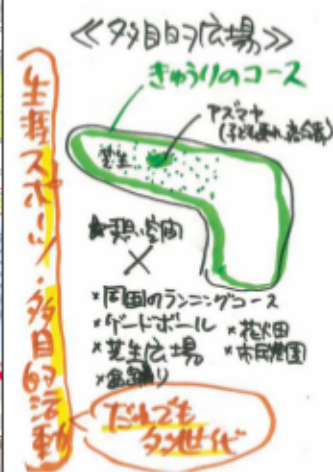 ≪多目的広場≫
きゅうりのコース
アズマヤ
芝生
憩い空間
×
*周囲のランニングコース
*ゲートボール
*花火田
*芝生広場
*市民農園
*盆踊り
生涯スポーツ・多目的活動
だれでも
多世代